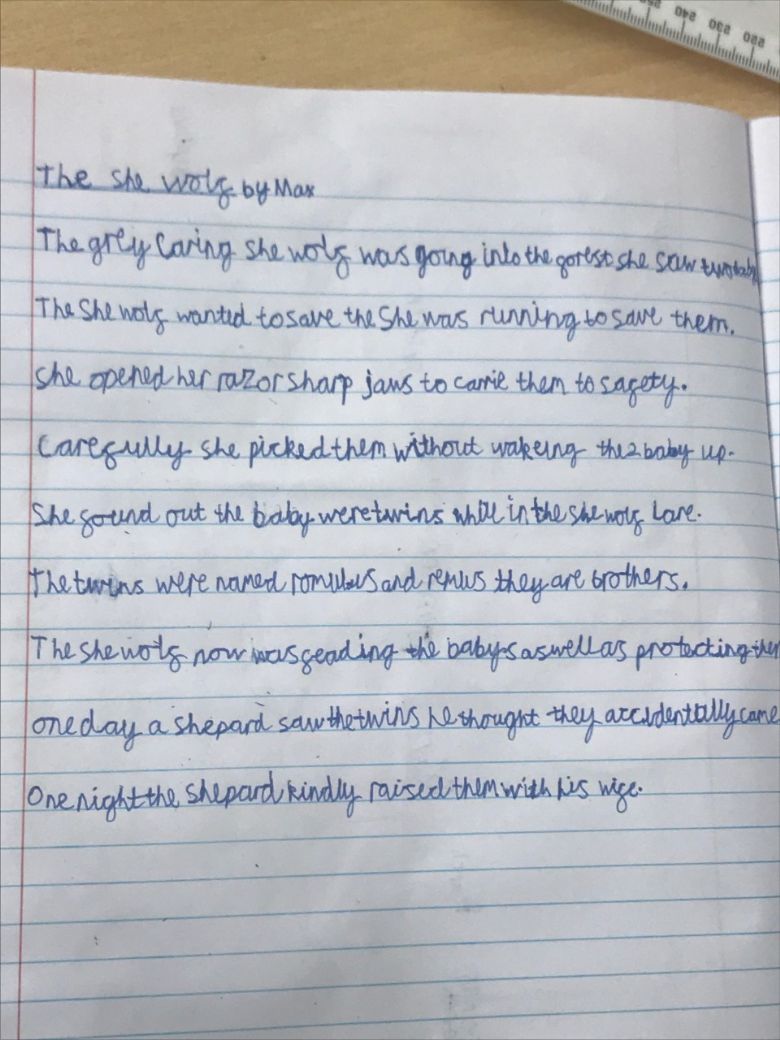 The she wolf by Max
The grey caring she wolf was going into the forest she saw two baby
The She wolf wanted to save the She was running to save them.
She opened her razor sharp jaws to carrie them to safety.
Carefully she picked them without wakeing the 2 baby up.
She found out the baby were twins while in the she wolf lare.
The twins were named romulus and remus they are brothers.
The she wolf now was feading the babys as well as protecting them
one day a shepard saw the twins he thought they accidentally came
One night the shepard kindly raised them with his wife.
220 230 240 250